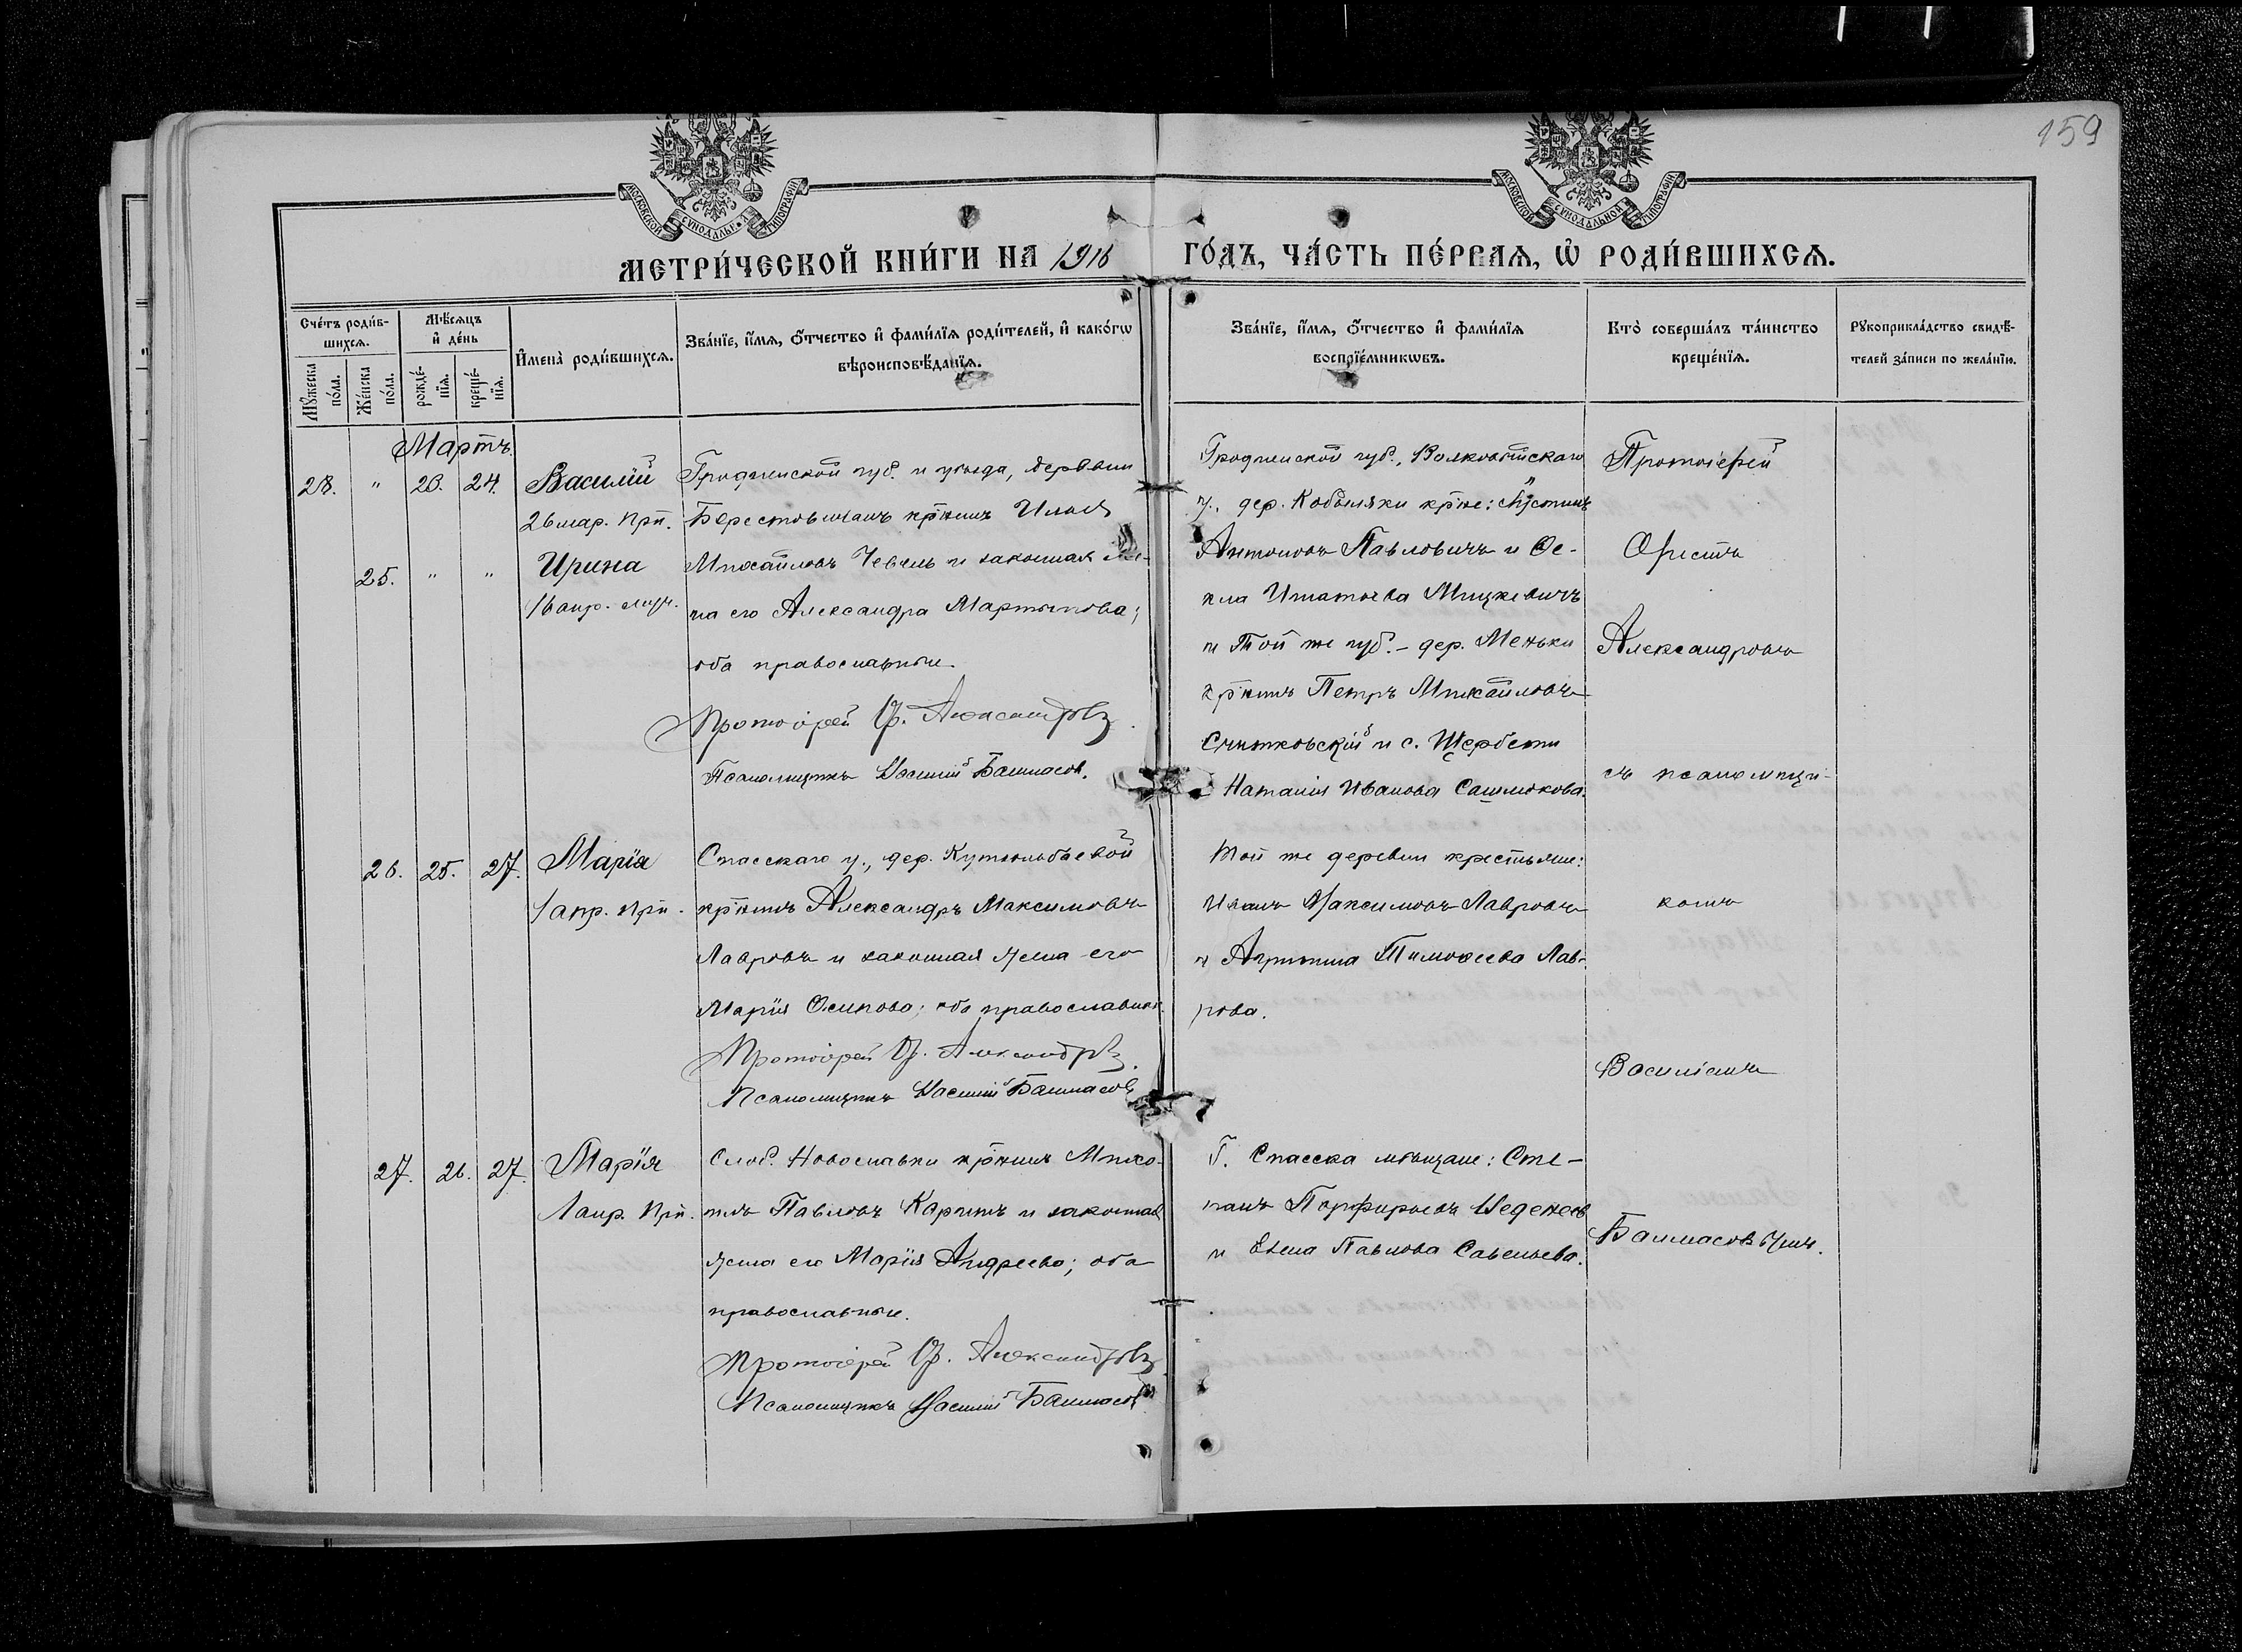 159
МОСКОВСКОЙ СѴНОДАЛЬНОЙ ТИПОГРАФІИ
МОСКОВСКОЙ СѴНОДАЛЬНОЙ ТИПОГРАФІИ
МЕТРИ́ЧЕСКОЙ КНИ́ГИ НА 1916 ГО́ДЪ, ЧА́СТЬ ПЕ́РВАѦ, Ѡ҆ РОДИ́ВШИХСѦ.
Сче́тъ роди́в-
шихсѧ.
Мꙋ́жеска по́ла.
Же́нска по́ла.
Мѣ́сѧцъ
и҆ де́нь
рожде́-
нїѧ.
креще́-
нїѧ.
И҆мена̀ роди́вшихсѧ.
Зва́нїе, и҆́мѧ, ѻ҆́тчество и҆ фами́лїѧ роди́телей, и҆ како́гѡ
вѣроисповѣ́данїѧ.
Зва́нїе, и҆́мѧ, ѻ҆́тчество и҆ фами́лїѧ
воспрїе́мникѡвъ.
Кто̀ соверша́лъ та́инство
креще́нїѧ.
Рꙋкоприкла́дство свидѣ́-
телей за́писи по жела́нїю.
Мартъ
28. " 23. 24. Василій
26 мар. Прп.
25. " " Ирина
16 апр. муч.
Гродненской губ. и уѣзда, деревни
Берестовчанъ кр̄нинъ Илья
Михайловъ Чевель и законная же-
на его Александра Мартынова;
оба православные.
Протоіерей Ор. Александровъ.
Псаломщикъ Василій Балмасовъ.
Гродненской губ., Волковысскаго
у., дер. Кобыляки кр̄не:
Антоновъ Павловичъ и Ѳе-
кла Игнатьева Мицкевичъ
и той же губ. – дер. Меньки
кр̄нинъ Петръ Михайловъ
и с. Щербети
Наталія Иванова
Протоіерей
Орестъ
Александровъ
съ псаломщи-
комъ
Василіемъ
26. 25. 27. Марія
1 апр. Прп.
Спасскаго у., дер. Кутюльбаевой
кр̄нинъ Александръ Максимовъ
Лавровъ и законная жена его
Марія Осипова; оба православные.
Протоіерей Ор. Александровъ.
Псаломщикъ Василій Балмасовъ
Той же деревни крестьяне:
Иванъ Максимовъ Лавровъ
и Агриппина Тимоѳеева Лав-
рова.
27. 26. 27. Марія
1 апр. Прп.
Слоб. Новославки кр̄нинъ Миха-
илъ Павловъ Каринъ и законная
жена его Марія Андреева; оба
православные.
Протоіерей Ор. Александровъ
Псаломщикъ Василій Балмасовъ
Г. Спасска мѣщане: Сте-
панъ Порфирьевъ
и Елена Павлова Савельева.